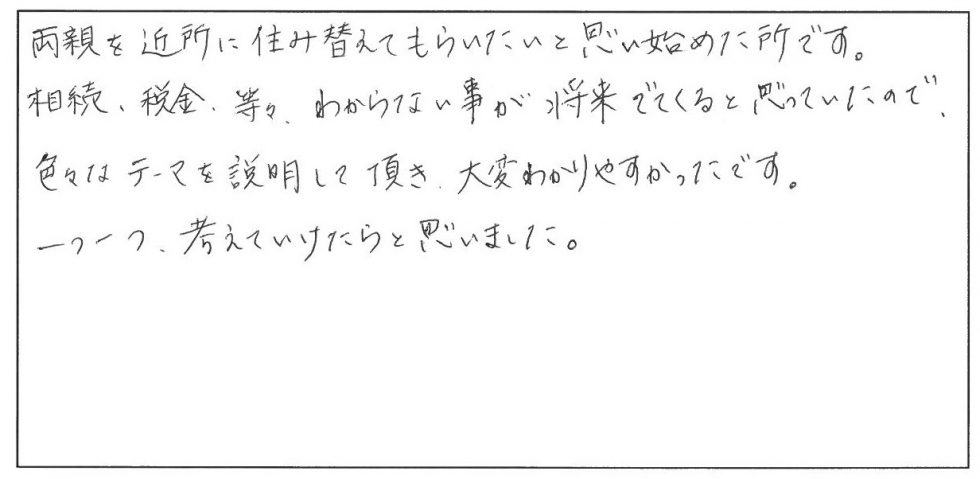 両親を近所に住み替えてもらいたいと思い始めた所です。
相続、税金、等々、わからない事が将来でてくると思っていたので、
色々なテーマを説明して頂き、大変わかりやすかったです。
一つ一つ、考えていけたらと思いました。